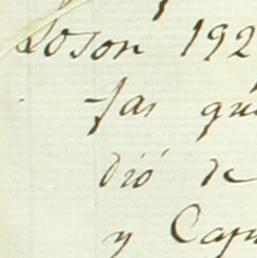 Loson 192
fas qu
dió de
y Cap